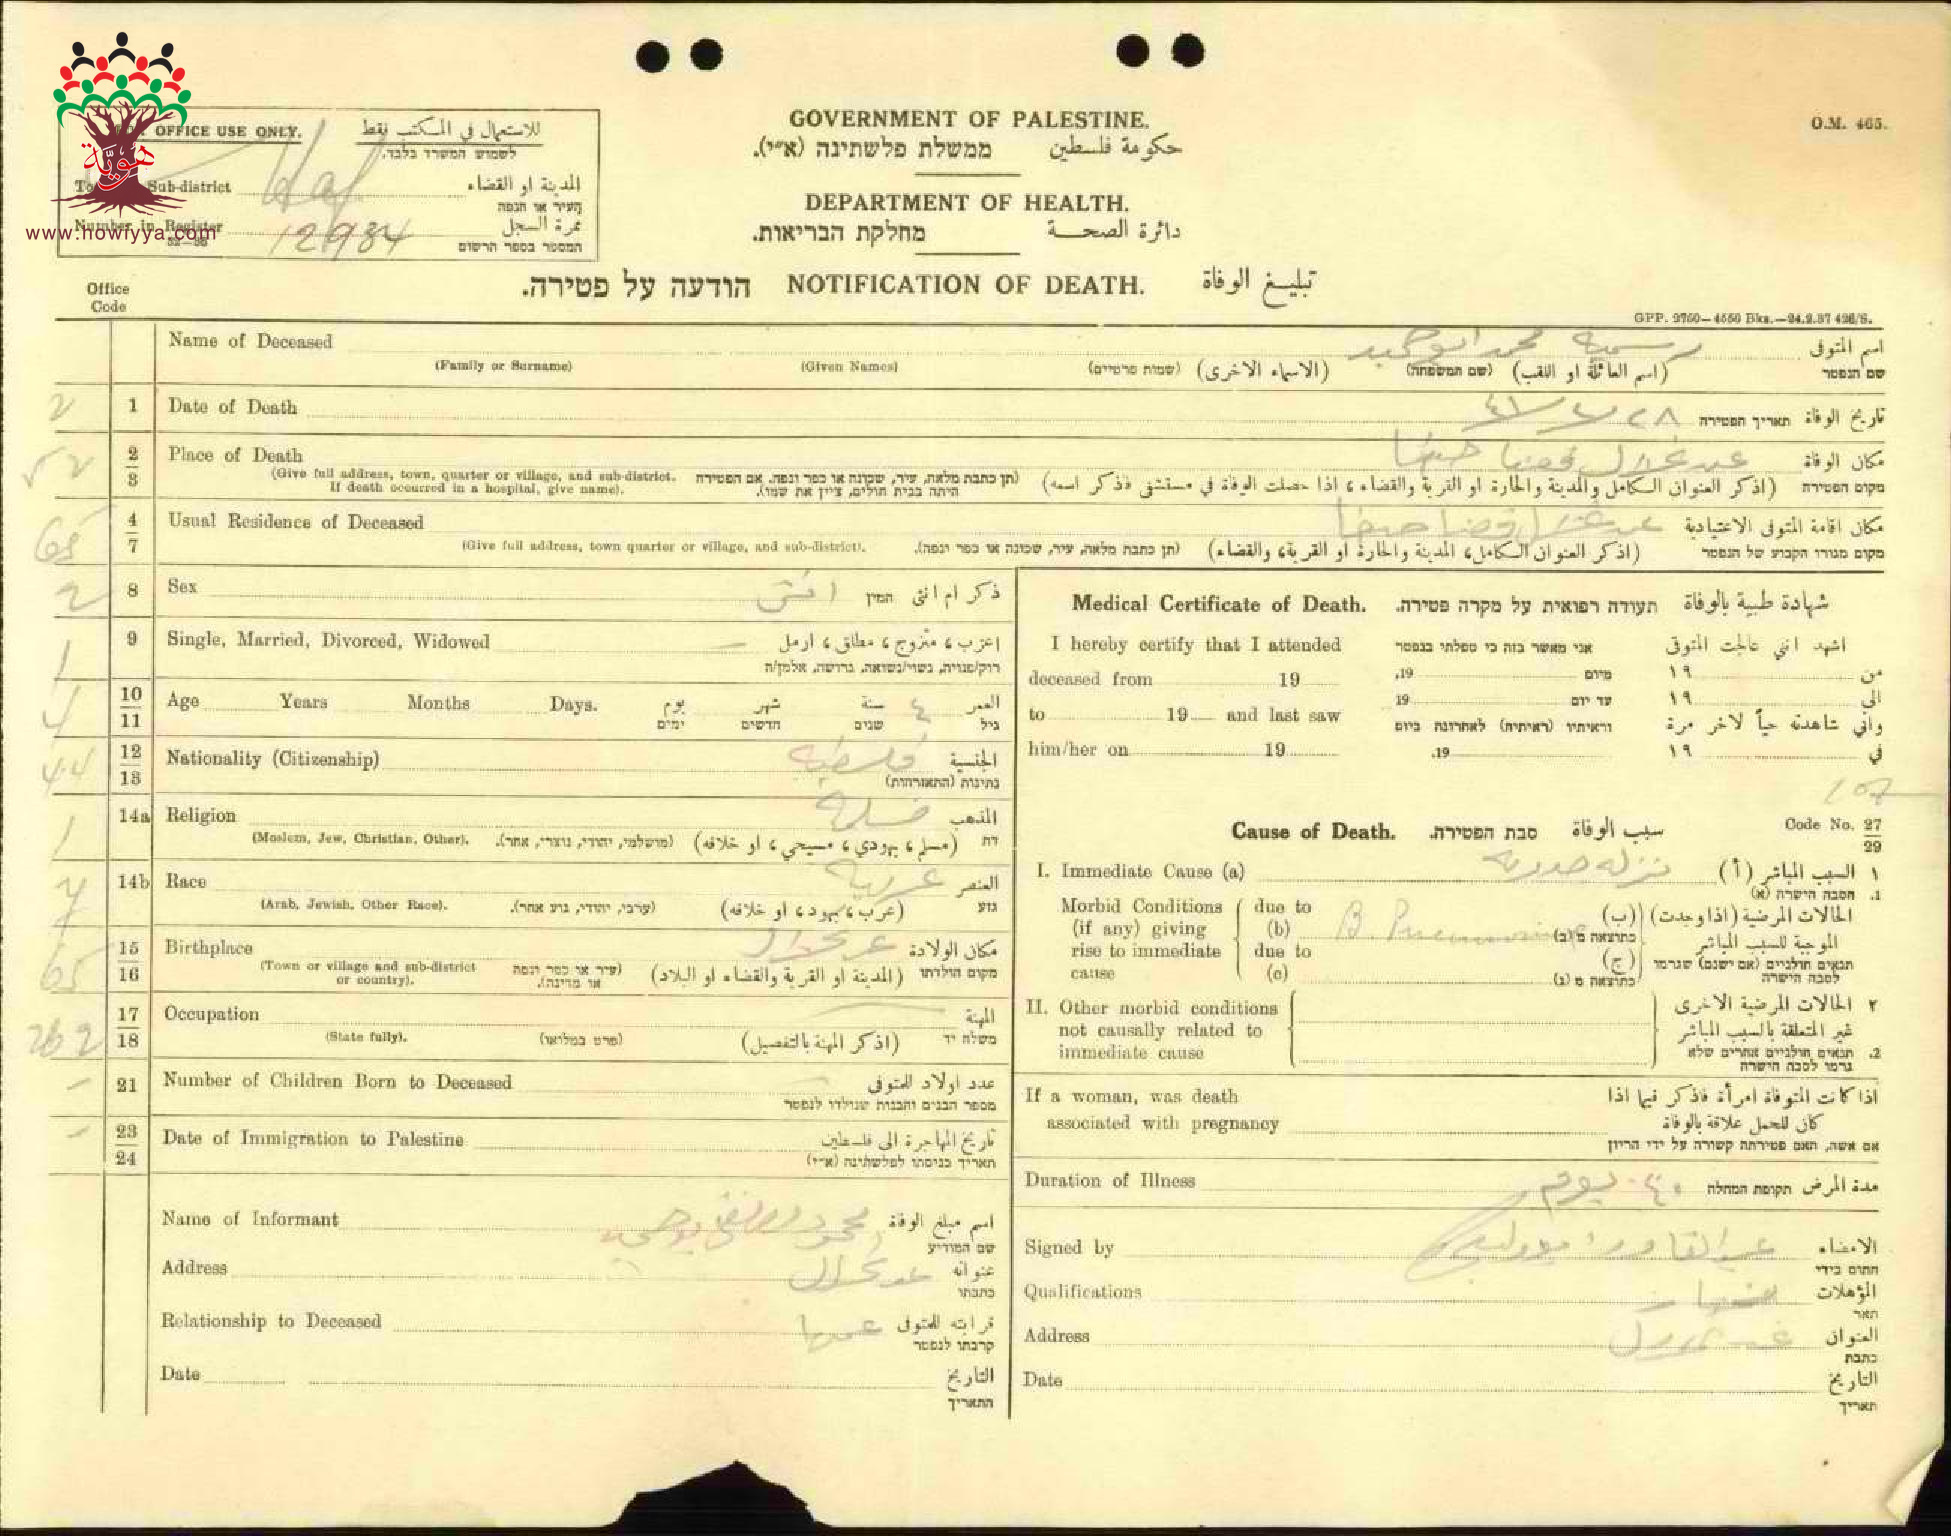 GOVERNMENT OF PALESTINE.
ממשלת פלשתינה (א״י). حكومة فلسطين
DEPARTMENT OF HEALTH.
מחלקת הבריאות. دائرة الصحة
O.M. 465.
OFFICE USE ONLY. للاستعمال في المكتب فقط
לשמוש המשרד בלבד.
Sub-district المدينة او القضاء
העיר או הנפה
Number in Register 12934 نمرة السجل
המספר בספר הרשום
هوية
www.howiyya.com
הודעה על פטירה. NOTIFICATION OF DEATH. تبليغ الوفاة
Office
Code
GPP. 9750—4550 Bks.—24.2.37 426/S.
Name of Deceased رسمية محمد ابو حميد اسم المتوفى
(Family or Surname) (Given Names) (שמות פרטיים) (الاسماء الاخرى) (שם המשפחה) (اسم العائلة او اللقب) שם הנפטר
2 1 Date of Death תאריך הפטירה تاريخ الوفاة
2 Place of Death قضا حيفا مكان الوفاة
3 (Give full address, town, quarter or village, and sub-district. (תן כתבת מלאה, עיר, שכונה או כפר ונפה. אם הפטירה (اذكر العنوان الكامل والمدينة والحارة او القرية والقضاء، اذا حصلت الوفاة في مستشفى فذكر اسمه) מקום הפטירה
If death occurred in a hospital, give name). היתה בבית חולים, ציין את שמו).
4 Usual Residence of Deceased قضا حيفا مكان اقامة المتوفى الاعتيادية
7 (Give full address, town quarter or village, and sub-district). (תן כתבת מלאה, עיר, שכונה או כפר ונפה). (اذكر العنوان الكامل، المدينة والحارة او القرية، والقضاء) מקום מגורו הקבוע של הנפטר
2 8 Sex انثى המין ذكر ام انثى
1 9 Single, Married, Divorced, Widowed اعزب، متزوج، مطلق، ارمل
רוק/פנויה, נשוי/נשואה, גרושה, אלמן/ה
4 10 Age Years Months Days. يوم شهر سنة ٤ العمر
11 ימים חדשים שנים גיל
44 12 Nationality (Citizenship) الجنسية
13 נתינות (האזרחות)
1 14a Religion مسلمة المذهب
(Moslem, Jew, Christian, Other). (מושלמי, יהודי, נוצרי, אחר). (مسلم، يهودي، مسيحي، او خلافه) דת
14b Race عربية العنصر
(Arab, Jewish, Other Race). (ערבי, יהודי, גזע אחר). (عرب، يهود، او خلافه) גזע
65 15 Birthplace مكان الولادة
16 (Town or village and sub-district or country). (עיר או כפר ונפה או מדינה). (المدينة او القرية والقضاء او البلاد) מקום הולדתו
262 17 Occupation المهنة
18 (State fully). (פרט במלואו) (اذكر المهنة بالتفصيل) משלח יד
21 Number of Children Born to Deceased عدد اولاد المتوفى
מספר הבנים והבנות שנולדו לנפטר
23 Date of Immigration to Palestine تاريخ المهاجرة الى فلسطين
24 תאריך כניסתו לפלשתינה (א״י)
Name of Informant اسم مبلغ الوفاة
שם המודיע
Address عنوانه
כתבתו
Relationship to Deceased عمها قرابته للمتوفى
קרבתו לנפטר
Date التاريخ
התאריך
Medical Certificate of Death. תעודה רפואית על מקרה פטירה. شهادة طبية بالوفاة
I hereby certify that I attended אני מאשר בזה כי טפלתי בנפטר اشهد انني عالجت المتوفى
deceased from 19 19, מיום ١٩ من
to 19 and last saw 19 עד יום ١٩ الى
וראיתיו (ראיתיה) לאחרונה ביום واني شاهدته حياً لاخر مرة
him/her on 19 19. ١٩ في
107
Cause of Death. סבת הפטירה. سبب الوفاة Code No. 27
29
I. Immediate Cause (a) نزلة صدرية ١ السبب المباشر (أ)
1. הסבה הישרה (א)
Morbid Conditions due to الحالات المرضية (اذا وجدت) (ب)
(if any) giving (b) B. Pneumonia כתוצאה מ (ב) الموجبة للسبب المباشر
rise to immediate due to תנאים חולניים (אם ישנם) שגרמו (ج)
cause (c) כתוצאה מ (ג) לסבה הישרה
II. Other morbid conditions ٢ الحالات المرضية الاخرى
not causally related to غير المتعلقة بالسبب المباشر
immediate cause 2. תנאים חולניים אחרים שלא
גרמו לסבה הישרה
If a woman, was death اذا كانت المتوفاة امرأة فذكر فيما اذا
associated with pregnancy كان للحمل علاقة بالوفاة
אם אשה, האם פטירתה קשורה על ידי הריון
Duration of Illness يوم תקופת המחלה مدة المرض
Signed by عبد القادر الامضاء
חתום בידי
Qualifications المؤهلات
תאר
Address العنوان
כתבת
Date التاريخ
תאריך